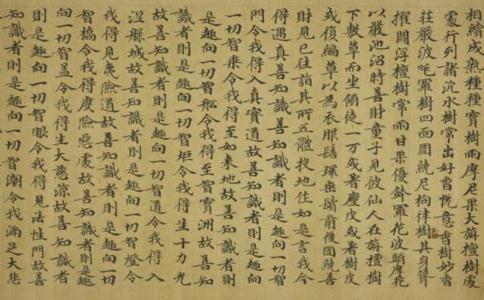 相續成熟種種寶樹雨摩尼果大旃檀樹處
處行列諸沉水樹常出好香悅意香樹妙香
莊嚴波吒羅樹四面圍繞尼拘律樹其身聳
擢閻浮檀樹常雨甘果優鉢羅花波頭摩花
以嚴池沼時善財童子見彼仙人在旃檀樹
下敷草而坐領徒一万或著鹿皮或著樹皮
或復編草以為衣服髻環垂鬢前後圍繞善
財見已往詣其所五體投地住如是言我今
得遇真善知識善知識者則是趣向一切智
門令我得入真實道故善知識者則是趣向
一切智乘令我得至如來地故善知識者則
是趣向一切智船令我得至智寶洲故善知
識者則是趣向一切智炬令我得生十力光
故善知識者則是趣向一切智道令我得入
涅槃城故善知識者則是趣向一切智燈令
我得見夷險道故善知識者則是趣向一切
智橋令我得度險惡處故善知識者則是趣
向一切智蓋令我得生大慈涼故善知識者
則是趣向一切智眼令我得見法性門故善
知識者則是趣向一切智潮令我滿足大悲